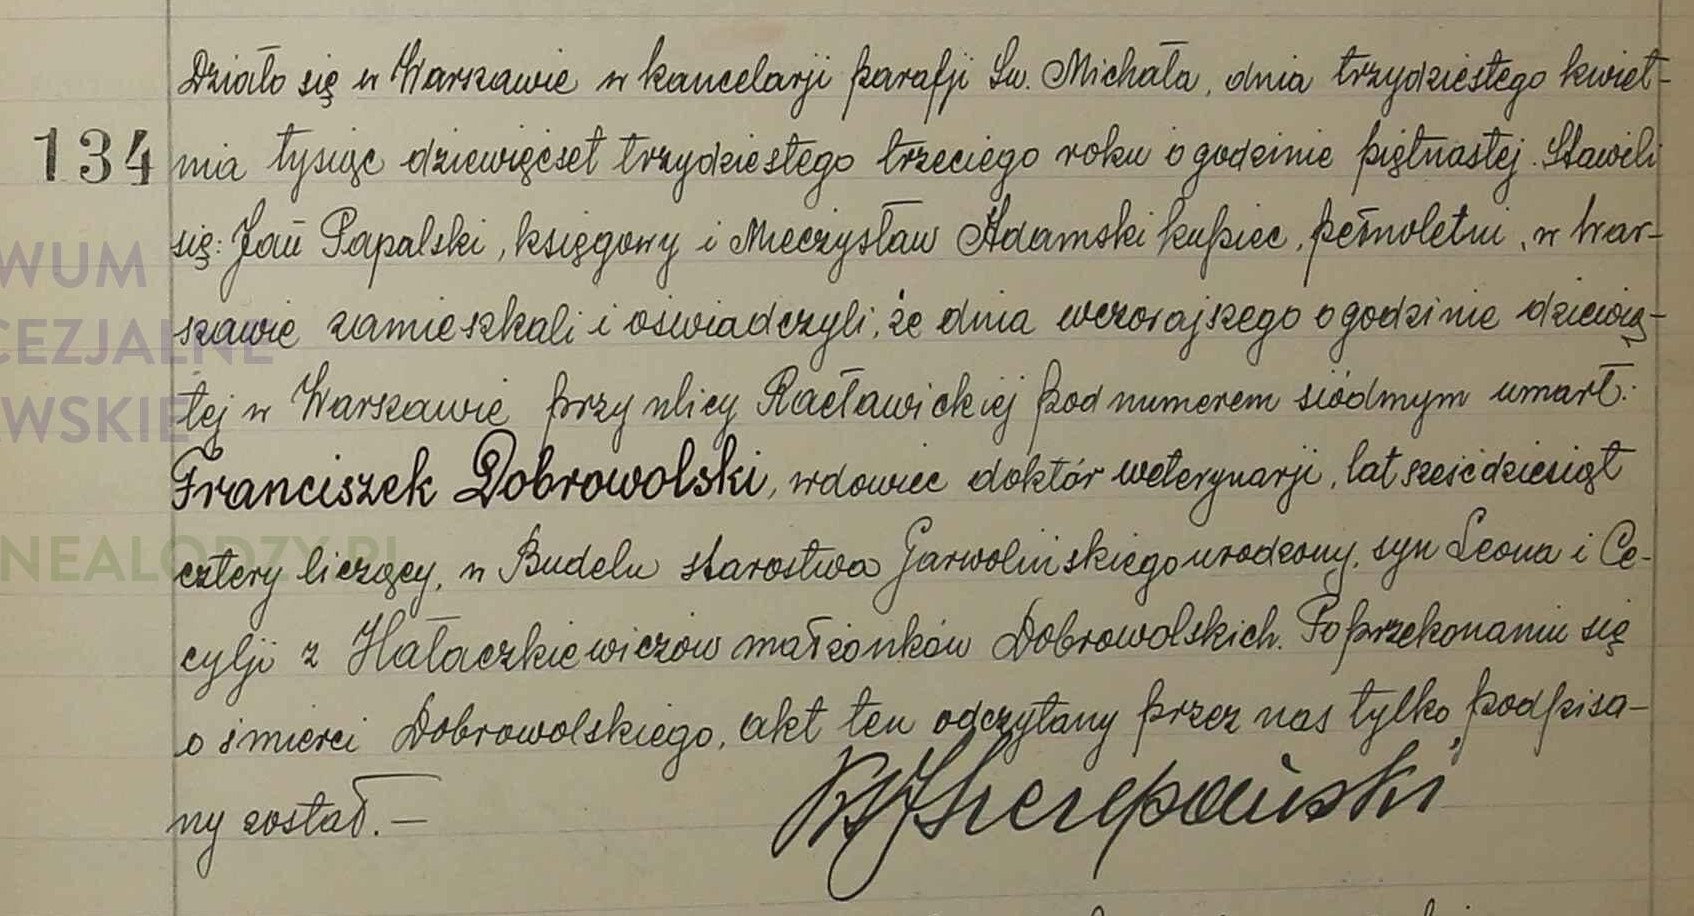 Działo się w Warszawie w kancelarji parafji Św. Michała, dnia trzydziestego kwiet-
134 nia tysiąc dziewięćset trzydziestego trzeciego roku o godzinie piętnastej. Stawili
się: Jan Papalski, księgowy i Mieczysław Adamski kupiec, pełnoletni, w War-
szawie zamieszkali i oświadczyli, że dnia wczorajszego o godzinie dziewią-
tej w Warszawie przy ulicy Racławickiej pod numerem siódmym umarł:
Franciszek Dobrowolski, wdowiec doktór weterynarji, lat sześćdziesiąt
cztery liczący, w Budelu starostwa Garwolińskiego urodzony, syn Leona i Ce-
cylji z Hałaczkiewiczów małżonków Dobrowolskich. Po przekonaniu się
o śmierci Dobrowolskiego, akt ten odczytany przez nas tylko podpisa-
ny został.—
WUM
CEZJALNE
WSKIE
NEALODZY.PL